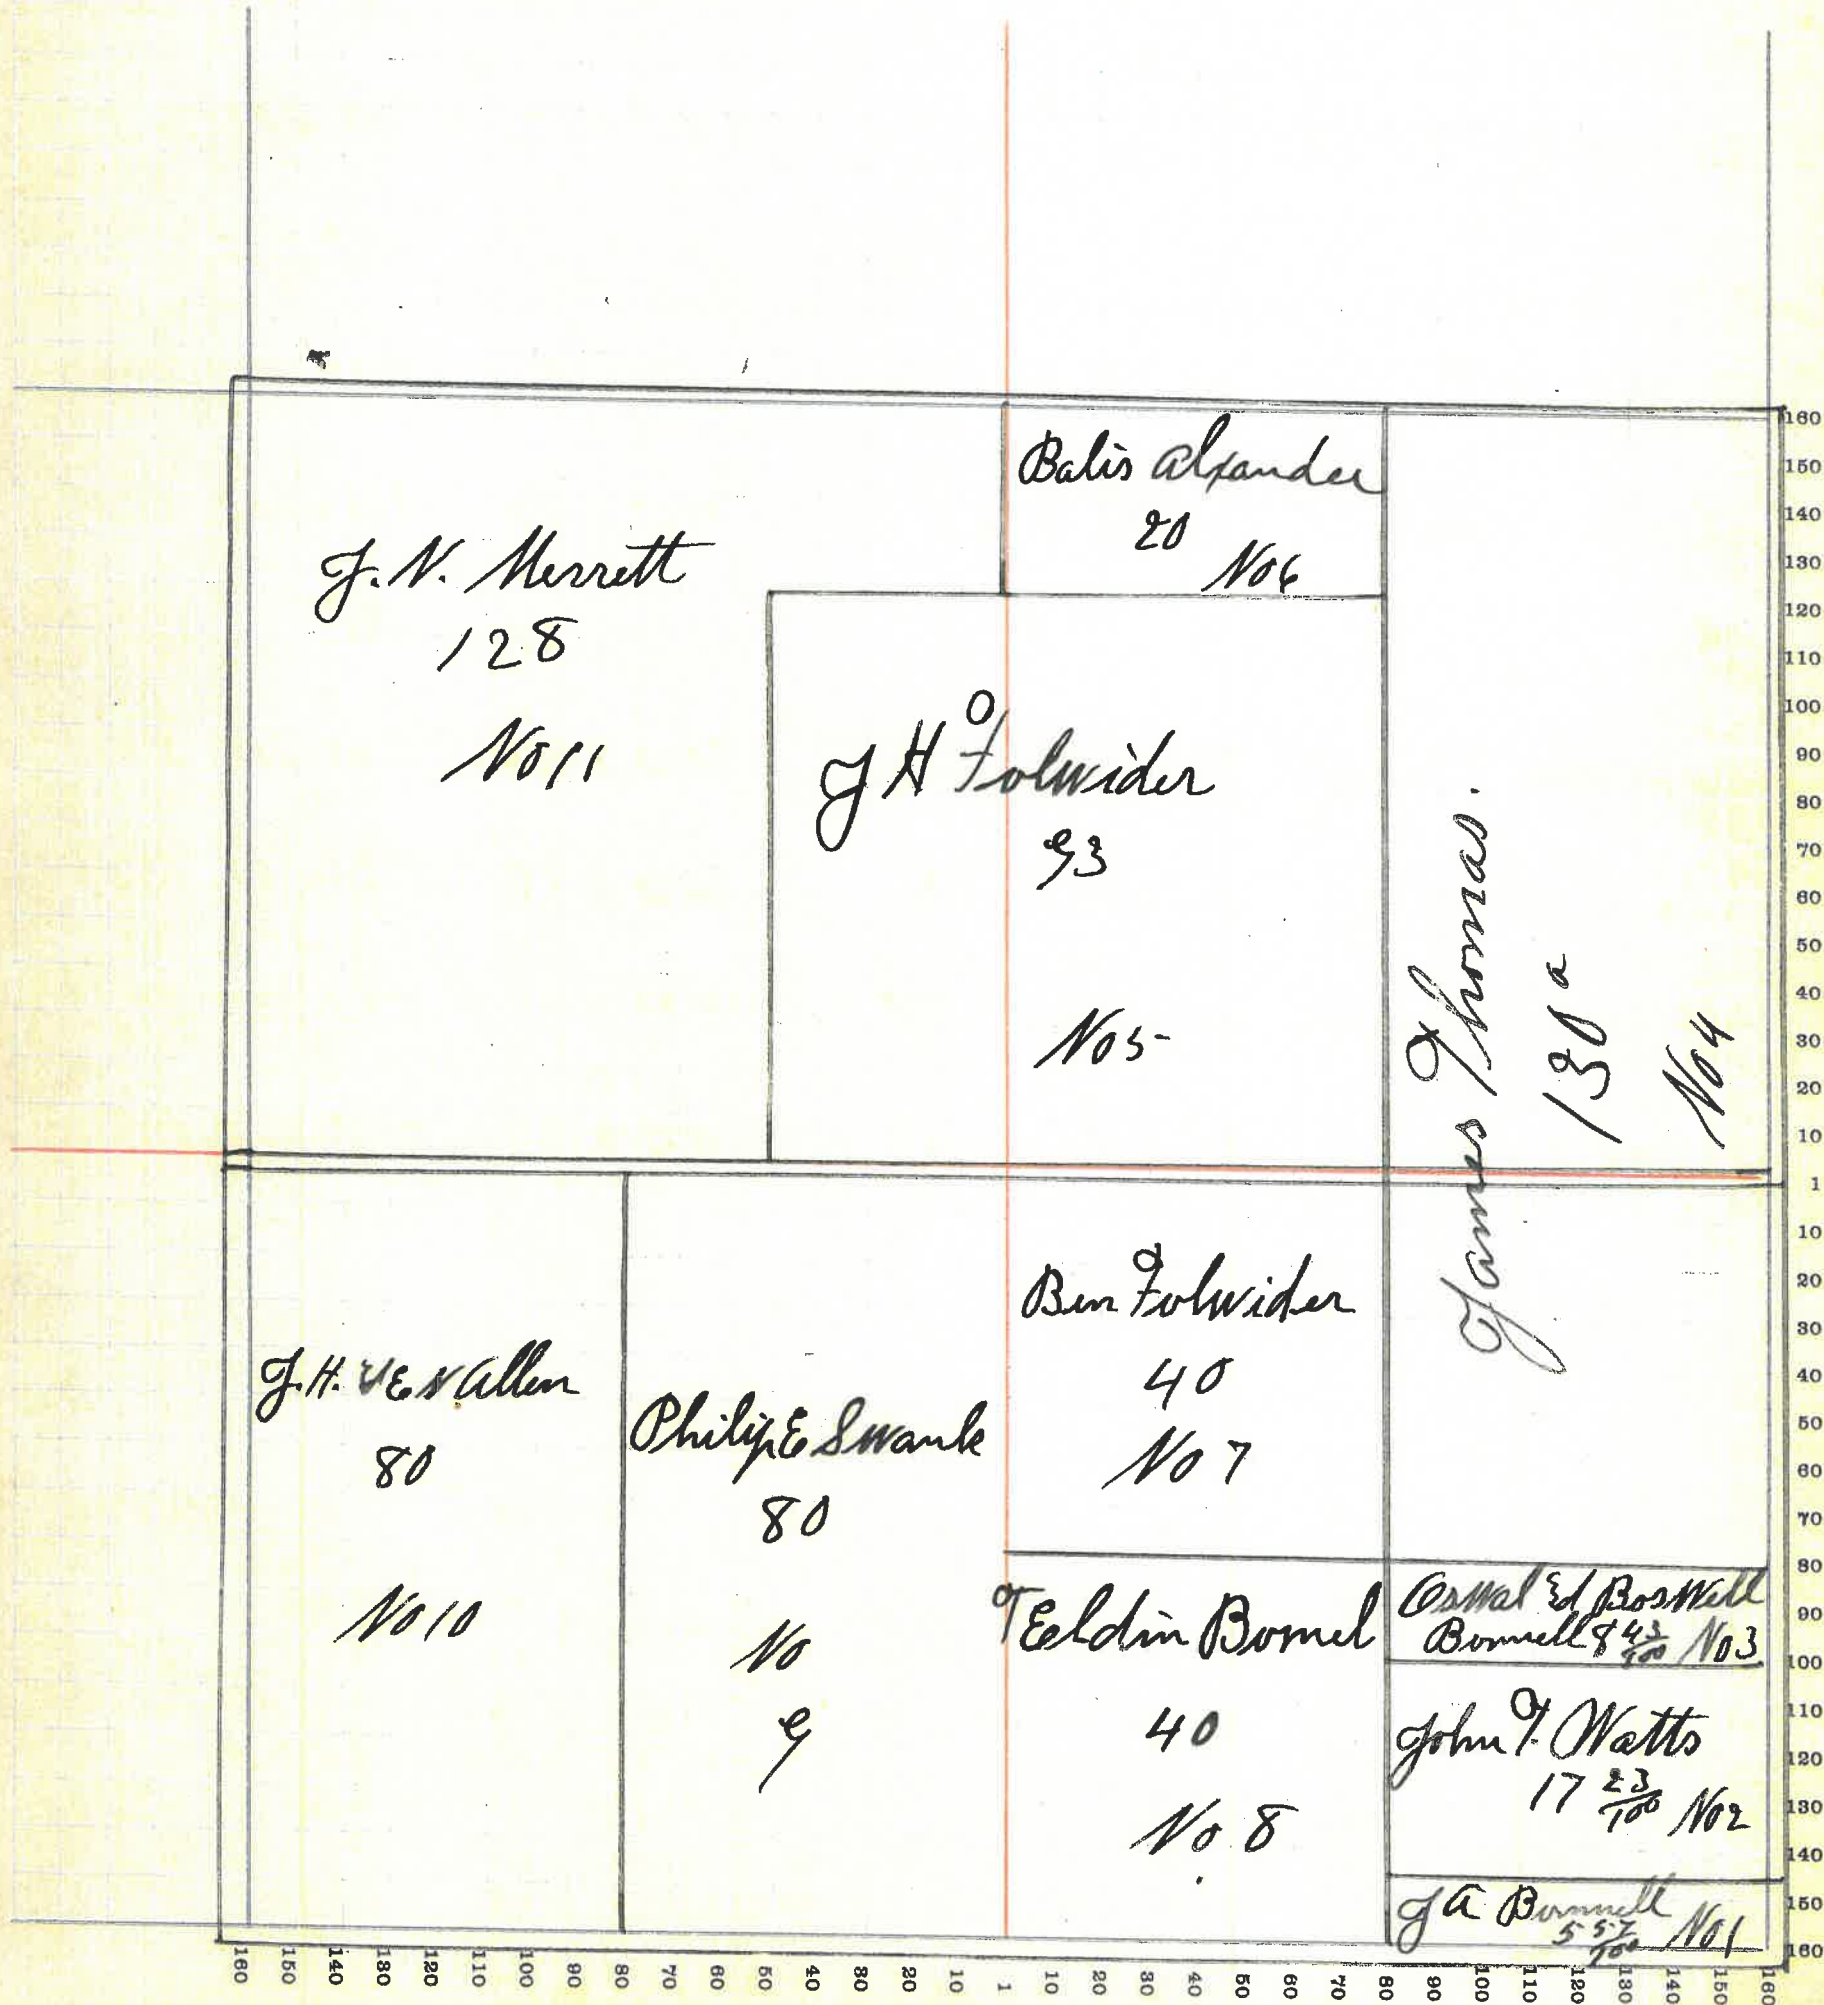 J. N. Merrett
128
No 11
Balis Alxander
20
No 6
J H Folwider
93
No 5
James Thomas.
130 a
No 4
J. H. Allen
80
No 10
Philip E Swank
80
No
9
Ben Folwider
40
No 7
Eeldin Bomel
40
No. 8
Oswal Ed Boswell
Bonnell 8 43/100 No 3
John F. Watts
17 23/100 No 2
J A Bonnell
5 57/100 No 1
160
150
140
130
120
110
100
90
80
70
60
50
40
30
20
10
1
10
20
30
40
50
60
70
80
90
100
110
120
130
140
150
160
160 150 140 130 120 110 100 90 80 70 60 50 40 30 20 10 1 10 20 30 40 50 60 70 80 90 100 110 120 130 140 150 160